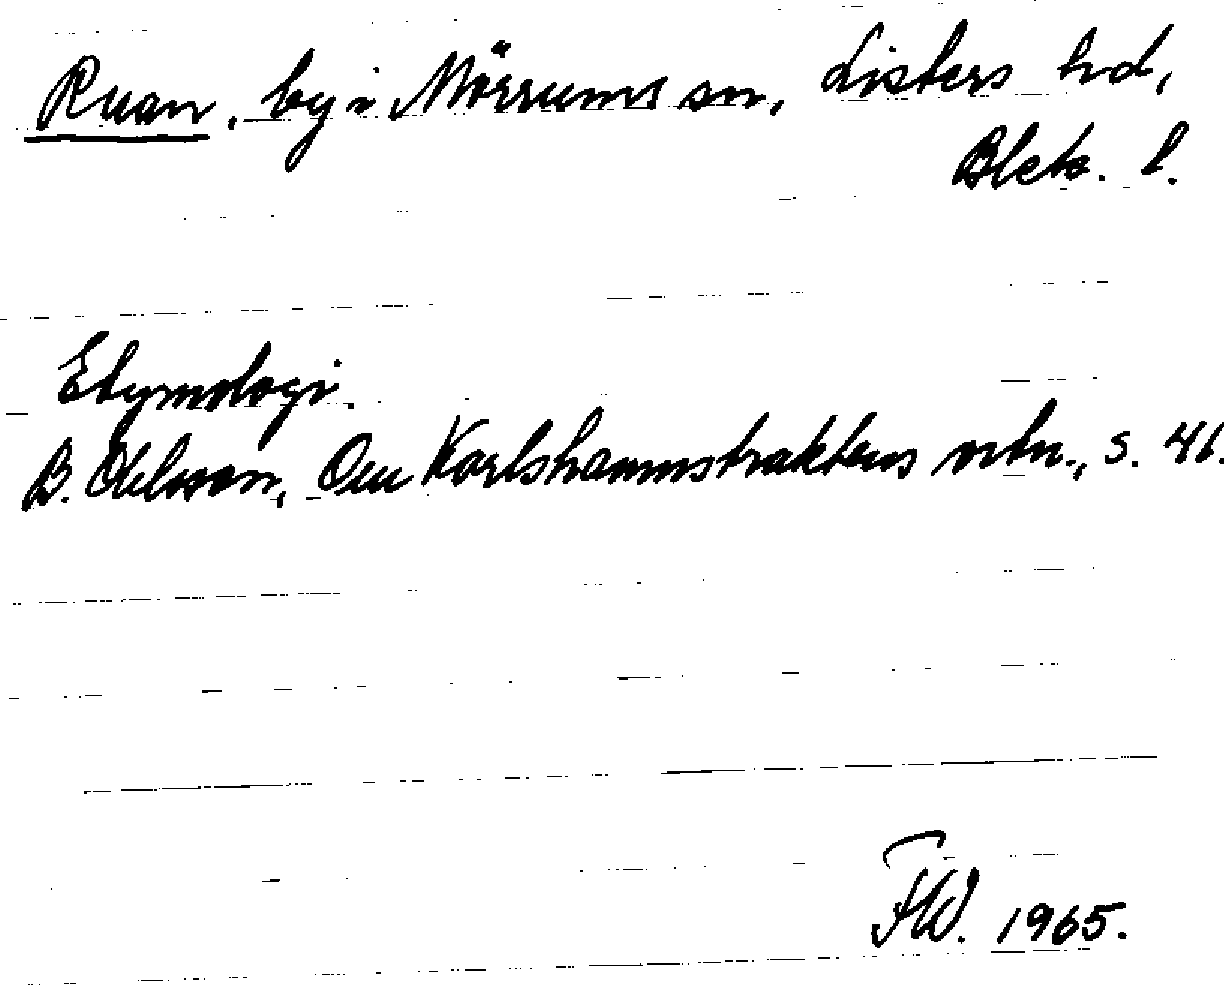 Ruan, by i Mörrums sn, Listers hd,
Blek. l.
Etymologi.
B. Ohlsson, Om Karlshamnstraktens ortn., s. 41.
FW. 1965.